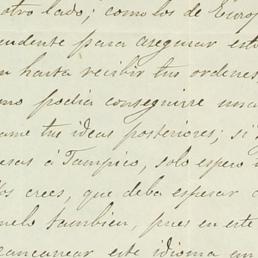 otro lado; como los de Europ
pendente para asegurar est
n hasta recibir tus ordenes
mo podia conseguirse una
ame tus ideas posteriores; si
esas á Tampico, solo espero
crees, que deba esperar
tambien, pues en este
este idioma un